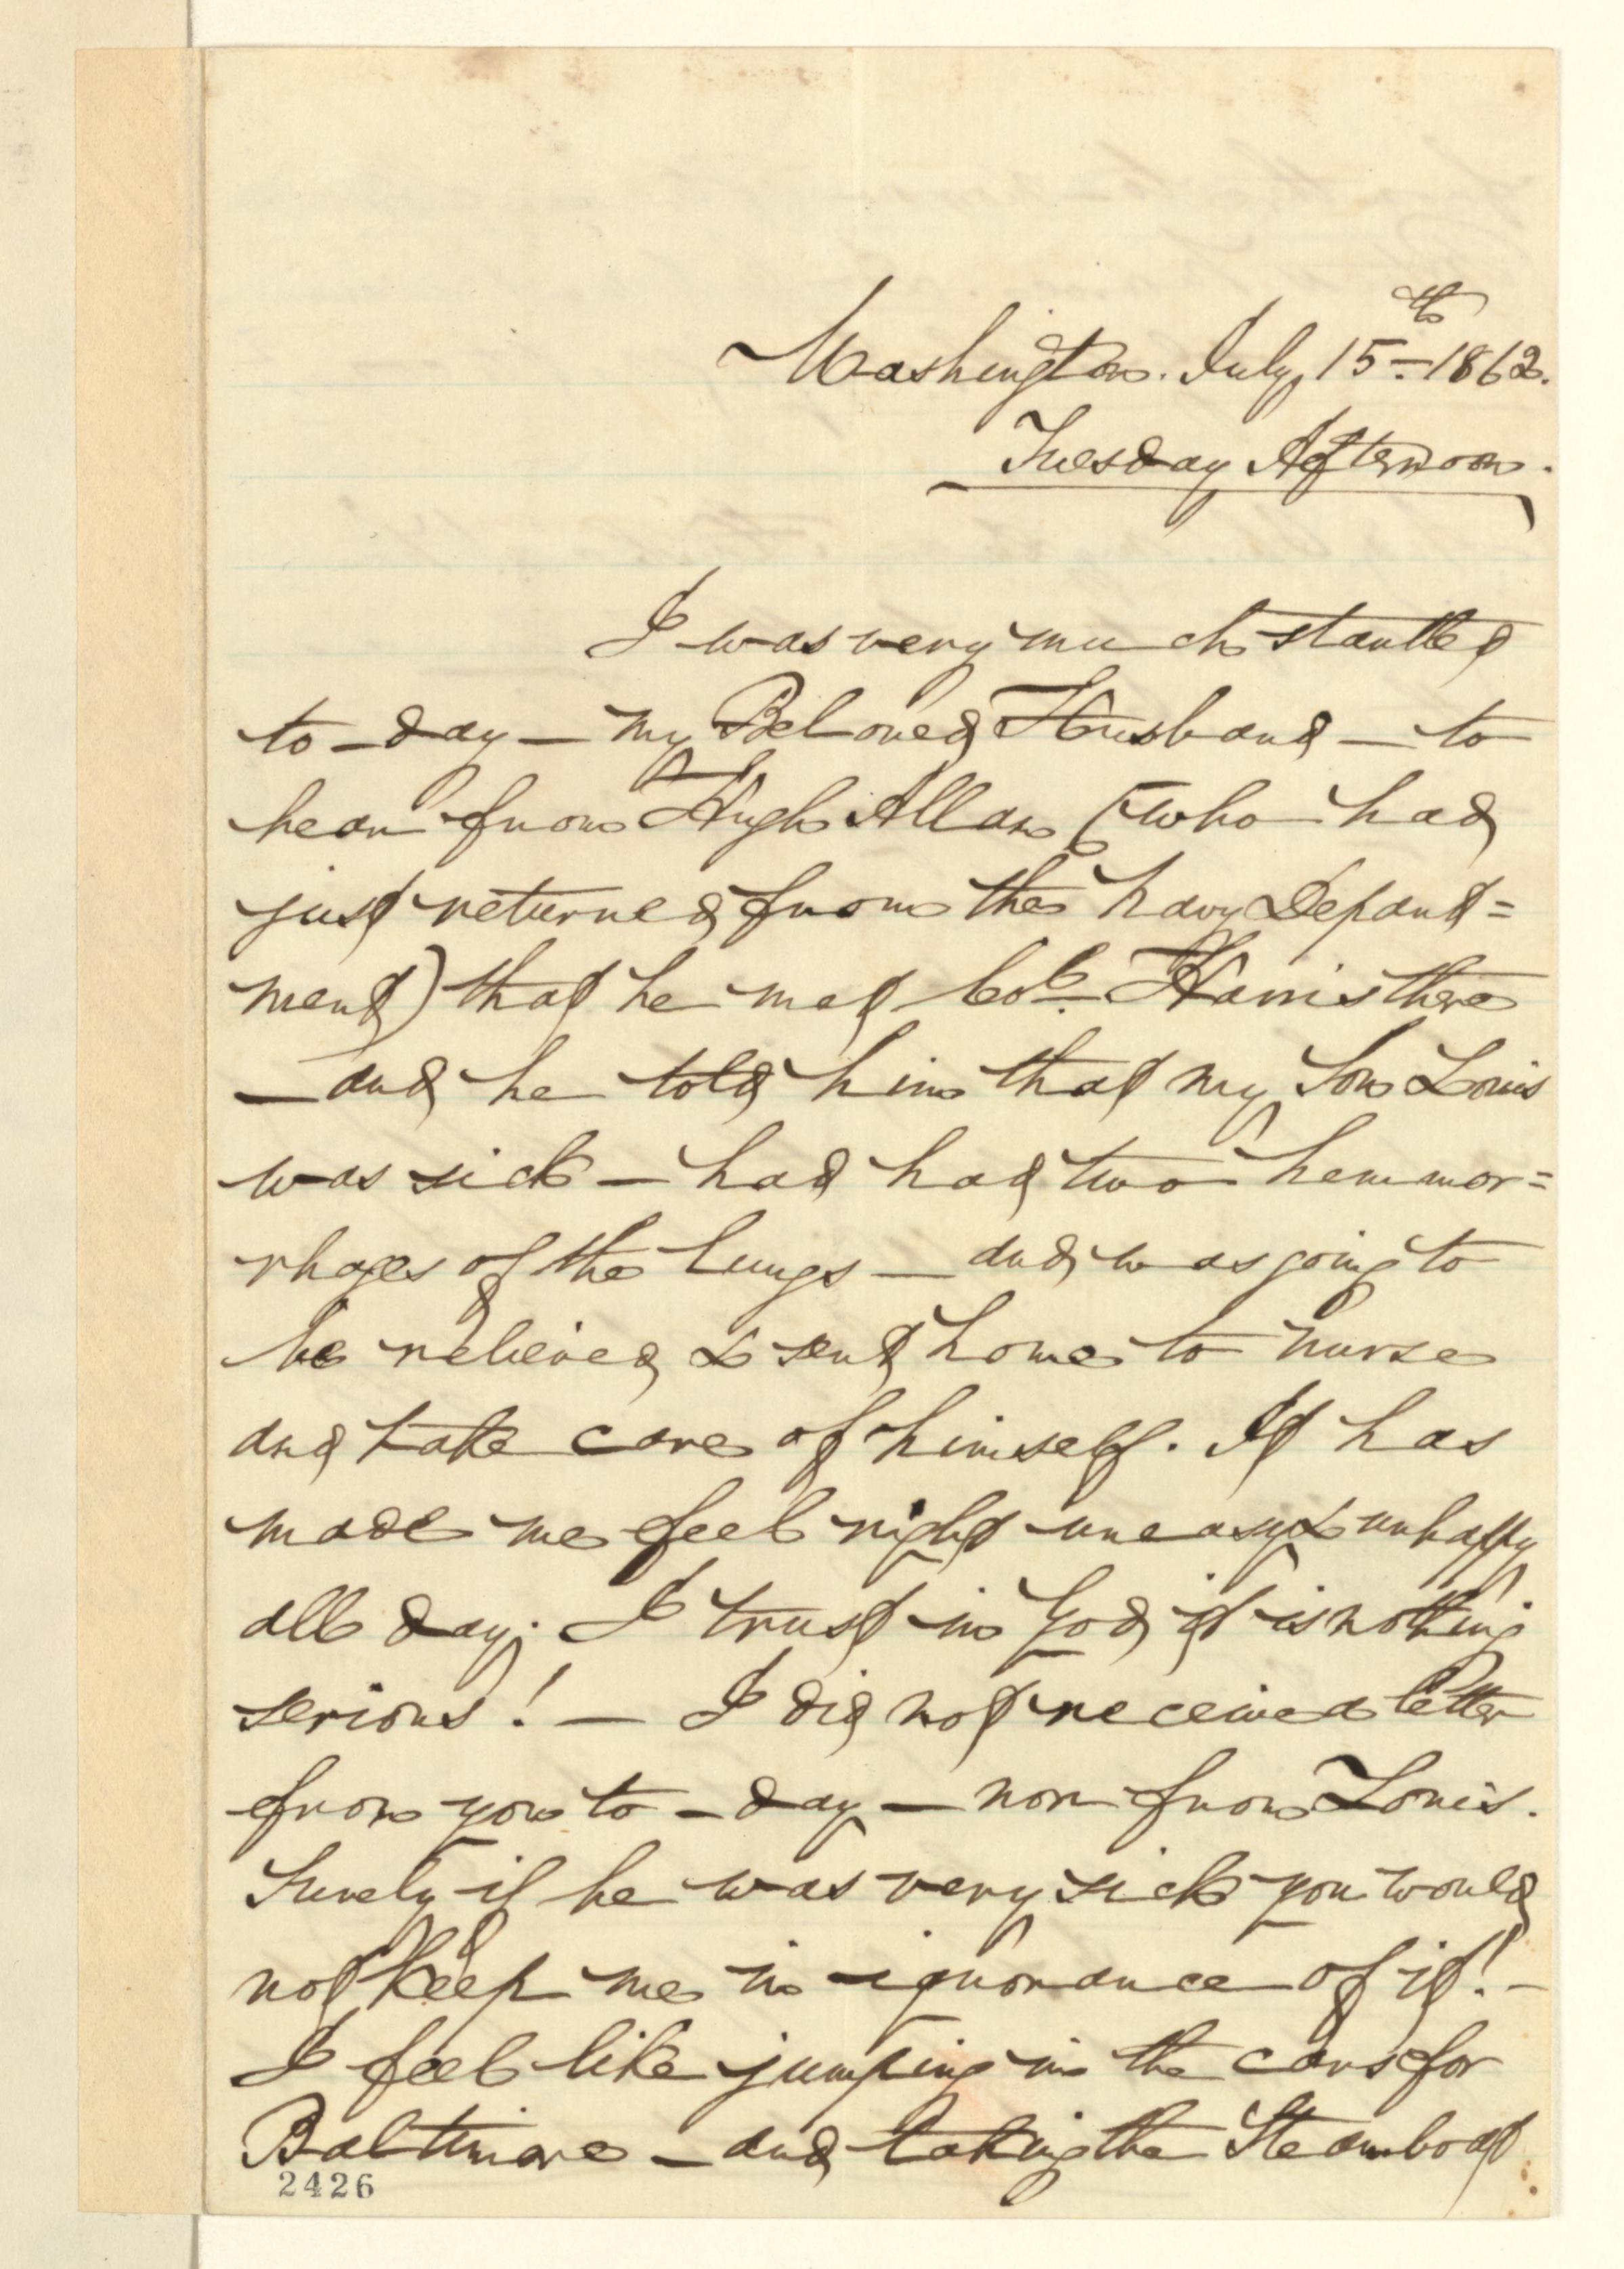 Washington. July 15th - 1862.
Tuesday Afternoon.
I was very much startled
to-day — my Beloved Husband — to
hear from Hugh Allan (who had
just returned from the Navy Depart=
ment) that he met Col. Harris there
— and he told him that my Son Louis
was sick — had had two hemmor=
rhages of the Lungs — and was going to
be relieved & sent home to nurse
and take care of himself. It has
made me feel right uneasy & unhappy
all day. I trust in God it is nothing
serious! — I did not receive a letter
from you to-day — nor from Louis.
Surely if he was very sick you would
not Keep me in ignorance of it! —
I feel like jumping in the cars for
Baltimore — and taking the Steamboat
2426